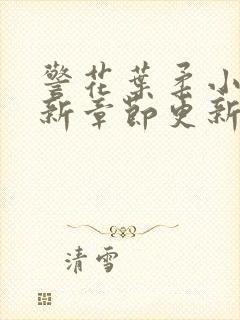 警花葉柔小
新章節更新
清雪